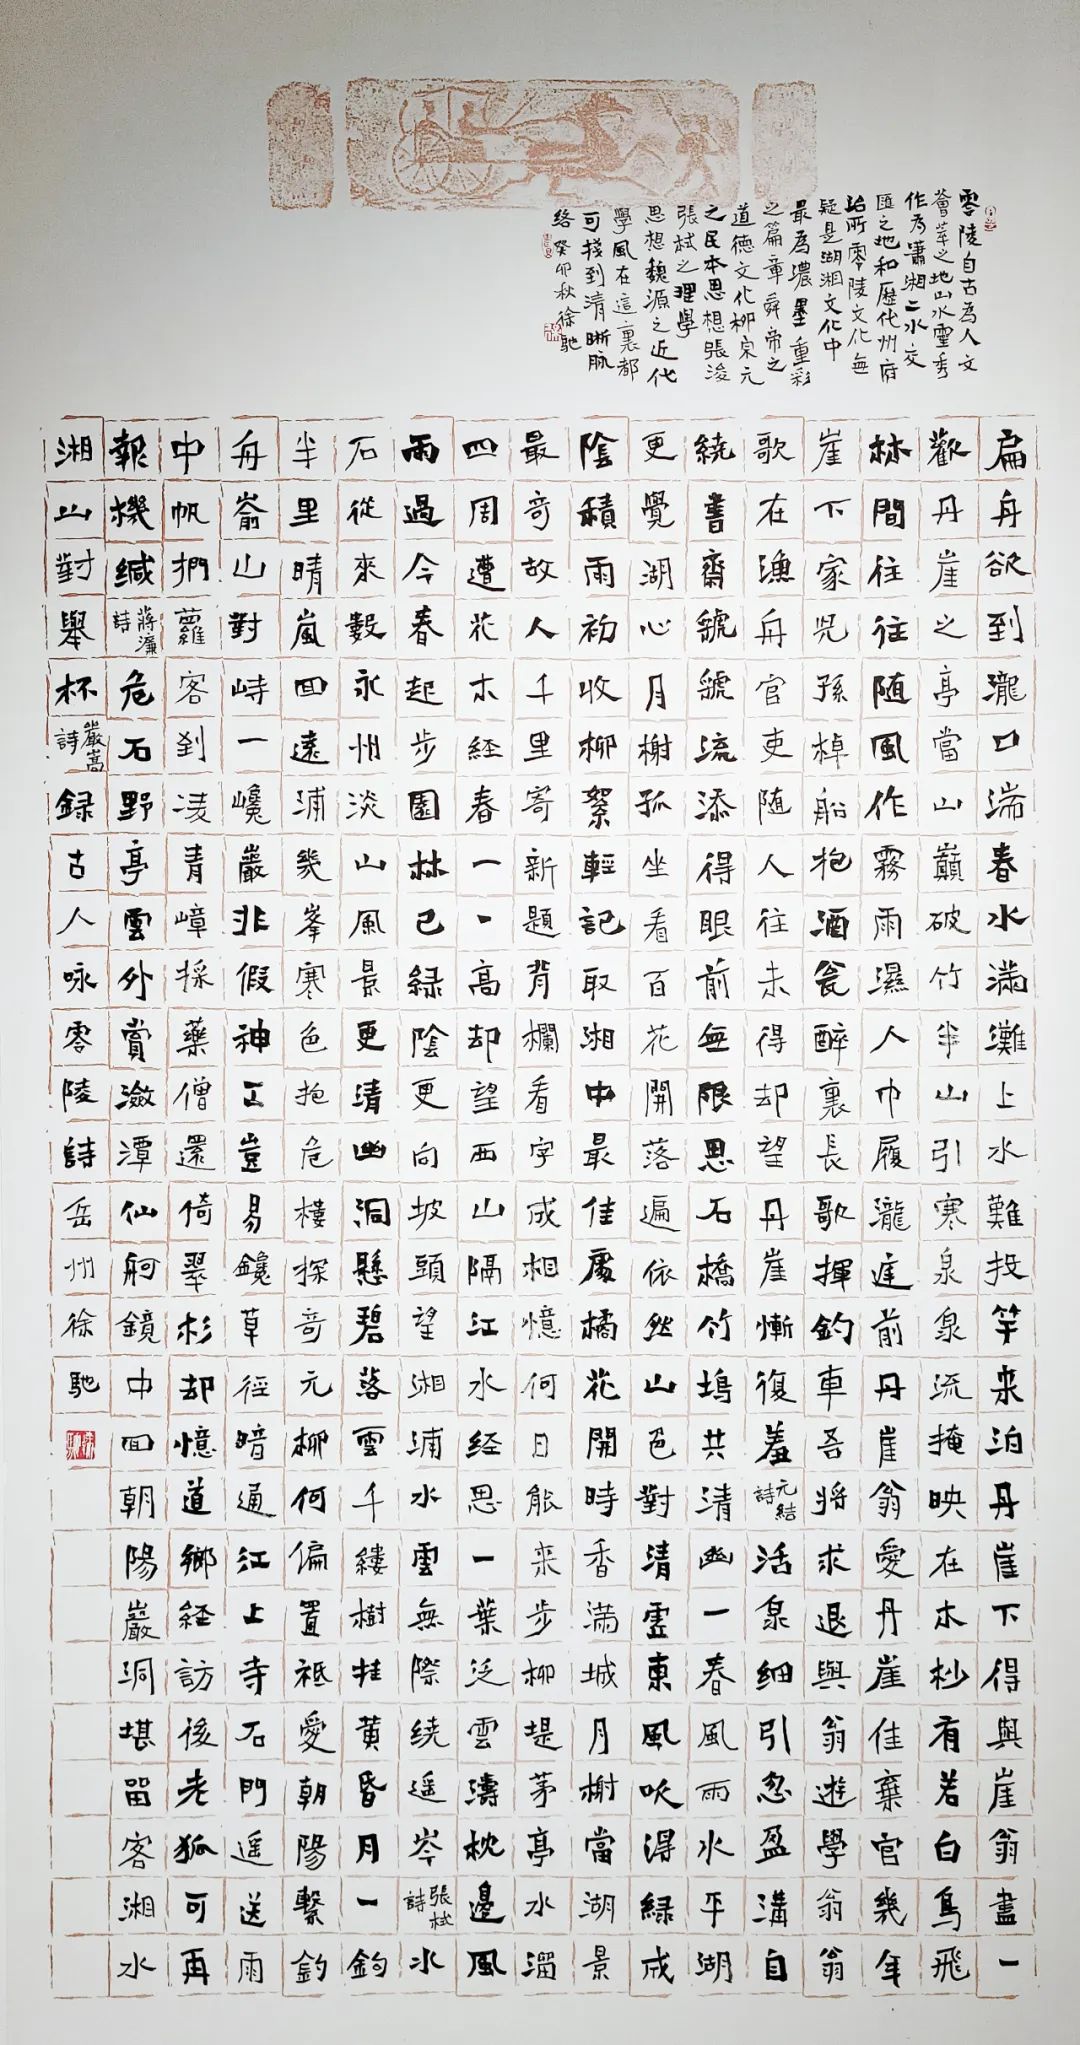 零陵自古為人文
薈萃之地山水靈秀
作为瀟湘二水交
匯之地和歷代州府
治所零陵文化無
疑是湖湘文化中
最為濃墨重彩
之篇章舜帝之
道德文化柳宗元
之民本思想張浚
張栻之理學
思想魏源之近代
學風在這裏都
可找到清晰脈
络癸卯秋徐馳
扁舟欲到瀧口湍春水滿灘上水難投竿来泊丹崖下得與崖翁盡一
歡丹崖之亭當山巔破竹半山引寒泉泉流掩映在木杪有若白鳥飛
林間往往随風作霧雨濕人巾履瀧庭前丹崖翁愛丹崖佳棄官幾年
崖下家兒孫棹船抱酒瓮醉裏長歌揮釣車吾將求退與翁遊學翁翁
歌在漁舟官吏随人往未得却望丹崖慚復羞元結詩活泉細引忽盈溝自
繞書齋虢虢流添得眼前無限思石橋竹塢共清幽一春風雨水平湖
更覺湖心月榭孤坐看百花開落遍依然山色對清虛東風吹得緑成
陰積雨初收柳絮輕記取湘中最佳處橘花開時香滿城月榭當湖景
最奇故人千里寄新題背欄看字成相憶何日能来步柳堤茅亭水溜
四周遭花木経春一一高却望西山隔江水経思一葉泛雲濤枕邊風
雨過今春起步園林已緑陰更向坡頭望湘浦水雲無際繞遥岑張栻詩水
石從來數永州淡山風景更清幽洞懸碧落雲千縷樹挂黄昏月一鈎
半里晴嵐回遠浦幾峯寒色抱危樓探奇元柳何偏置衹愛朝陽繫釣
舟崙山對峙一巉巖非假神工豈易鑱草徑暗通江上寺石門遥送雨
中帆捫蘿客到凌青嶂採藥僧還倚翠杉却憶道鄉経訪後老狐可再
報機緘蔣濂詩危石野亭雲外賞瀲潭仙舸鏡中回朝陽巖洞堪留客湘水
湘山對舉杯嚴嵩詩録古人咏零陵詩岳州徐馳